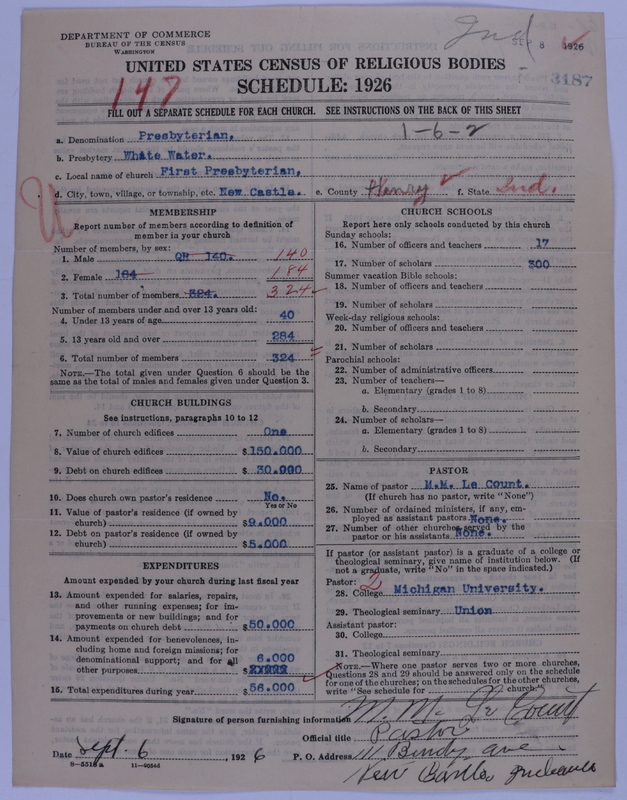 DEPARTMENT OF COMMERCE
BUREAU OF THE CENSUS
WASHINGTON
Ind
SEP 8 1926
3187
UNITED STATES CENSUS OF RELIGIOUS BODIES
SCHEDULE: 1926
147
FILL OUT A SEPARATE SCHEDULE FOR EACH CHURCH. SEE INSTRUCTIONS ON THE BACK OF THIS SHEET
1-6-2
a. Denomination Presbyterian,
b. Presbytery White Water.
c. Local name of church First Presbyterian,
d. City, town, village, or township, etc. New Castle. e. County Henry f. State Ind.
MEMBERSHIP
Report number of members according to definition of
member in your church
Number of members, by sex:
1. Male 140. 140
2. Female 184 184
3. Total number of members 324. 324
Number of members under and over 13 years old:
4. Under 13 years of age 40
5. 13 years old and over 284
6. Total number of members 324
NOTE.—The total given under Question 6 should be
same as the total of males and females given under Question 3.
CHURCH BUILDINGS
See instructions, paragraphs 10 to 12
7. Number of church edifices One
8. Value of church edifices $150.000
9. Debt on church edifices $30.000
10. Does church own pastor's residence No.
Yes or No
11. Value of pastor's residence (if owned by
church) $9.000
12. Debt on pastor's residence (if owned by
church) $5.000
EXPENDITURES
Amount expended by your church during last fiscal year
13. Amount expended for salaries, repairs,
and other running expenses; for im-
provements or new buildings; and for
payments on church debt $50.000
14. Amount expended for benevolences, in-
cluding home and foreign missions; for
denominational support; and for all 6.000
other purposes $
15. Total expenditures during year $56.000
CHURCH SCHOOLS
Report here only schools conducted by this church
Sunday schools:
16. Number of officers and teachers 17
17. Number of scholars 300
Summer vacation Bible schools:
18. Number of officers and teachers
19. Number of scholars
Week-day religious schools:
20. Number of officers and teachers
21. Number of scholars
Parochial schools:
22. Number of administrative officers
23. Number of teachers—
a. Elementary (grades 1 to 8)
b. Secondary
24. Number of scholars—
a. Elementary (grades 1 to 8)
b. Secondary
PASTOR
25. Name of pastor M.M. Le Count.
(If church has no pastor, write "None")
26. Number of ordained ministers, if any, em-
ployed as assistant pastors None.
27. Number of other churches served by the
pastor or his assistants None.
If pastor (or assistant pastor) is a graduate of a college or
theological seminary, give name of institution below. (If
not a graduate, write "No" in the space indicated.)
Pastor: 2
28. College Michigan University.
29. Theological seminary Union
Assistant pastor:
30. College
31. Theological seminary
NOTE.—Where one pastor serves two or more churches,
Questions 28 and 29 should be answered only on the schedule
for one of the churches; on the schedules for the other churches,
write "See schedule for church."
Signature of person furnishing information M. M. Le Count
Official title Pastor
Date Sept. 6, 1926 P. O. Address 111 Bundy Ave
New Castle Indiana
8-5518a 11-90565